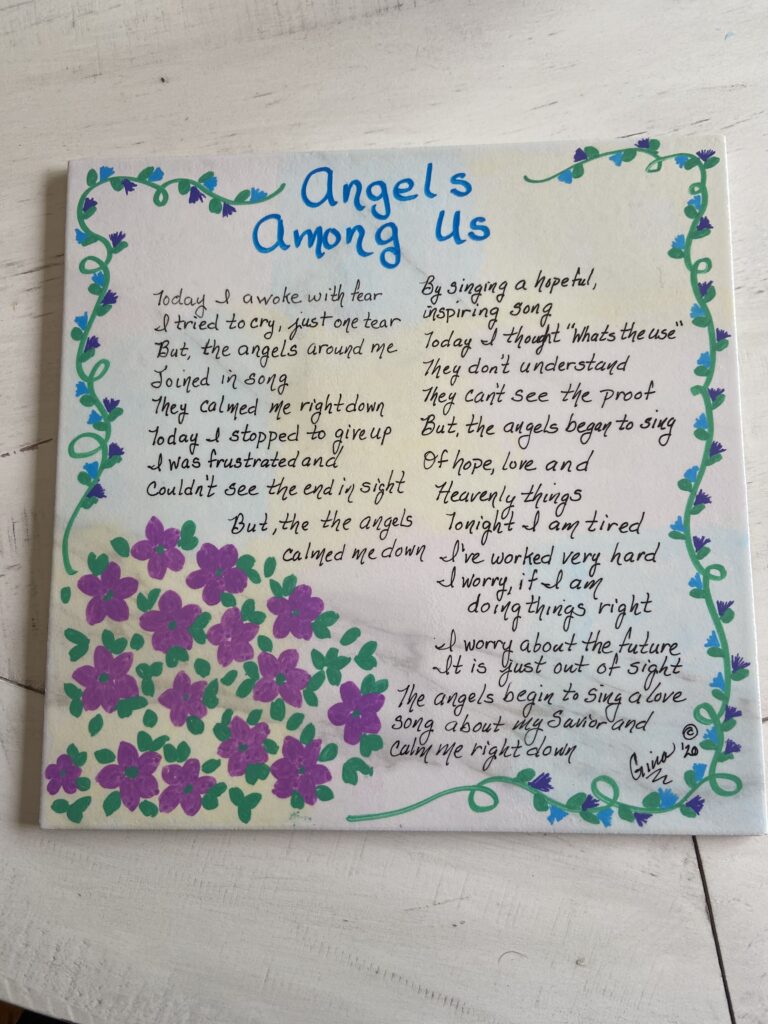 Angels
Among Us
Today I awoke with fear
I tried to cry, just one tear
But, the angels around me
Joined in song
They calmed me right down
Today I stopped to give up
I was frustrated and
Couldn't see the end in sight
But, the the angels
calmed me down
By singing a hopeful,
inspiring song
Today I thought "Whats the use"
They don't understand
They can't see the proof
But, the angels began to sing
Of hope, love and
Heavenly things
Tonight I am tired
I've worked very hard
I worry, if I am
doing things right
I worry about the future
It is just out of sight
The angels begin to sing a love
song about my Savior and
calm me right down
Gina ©'20